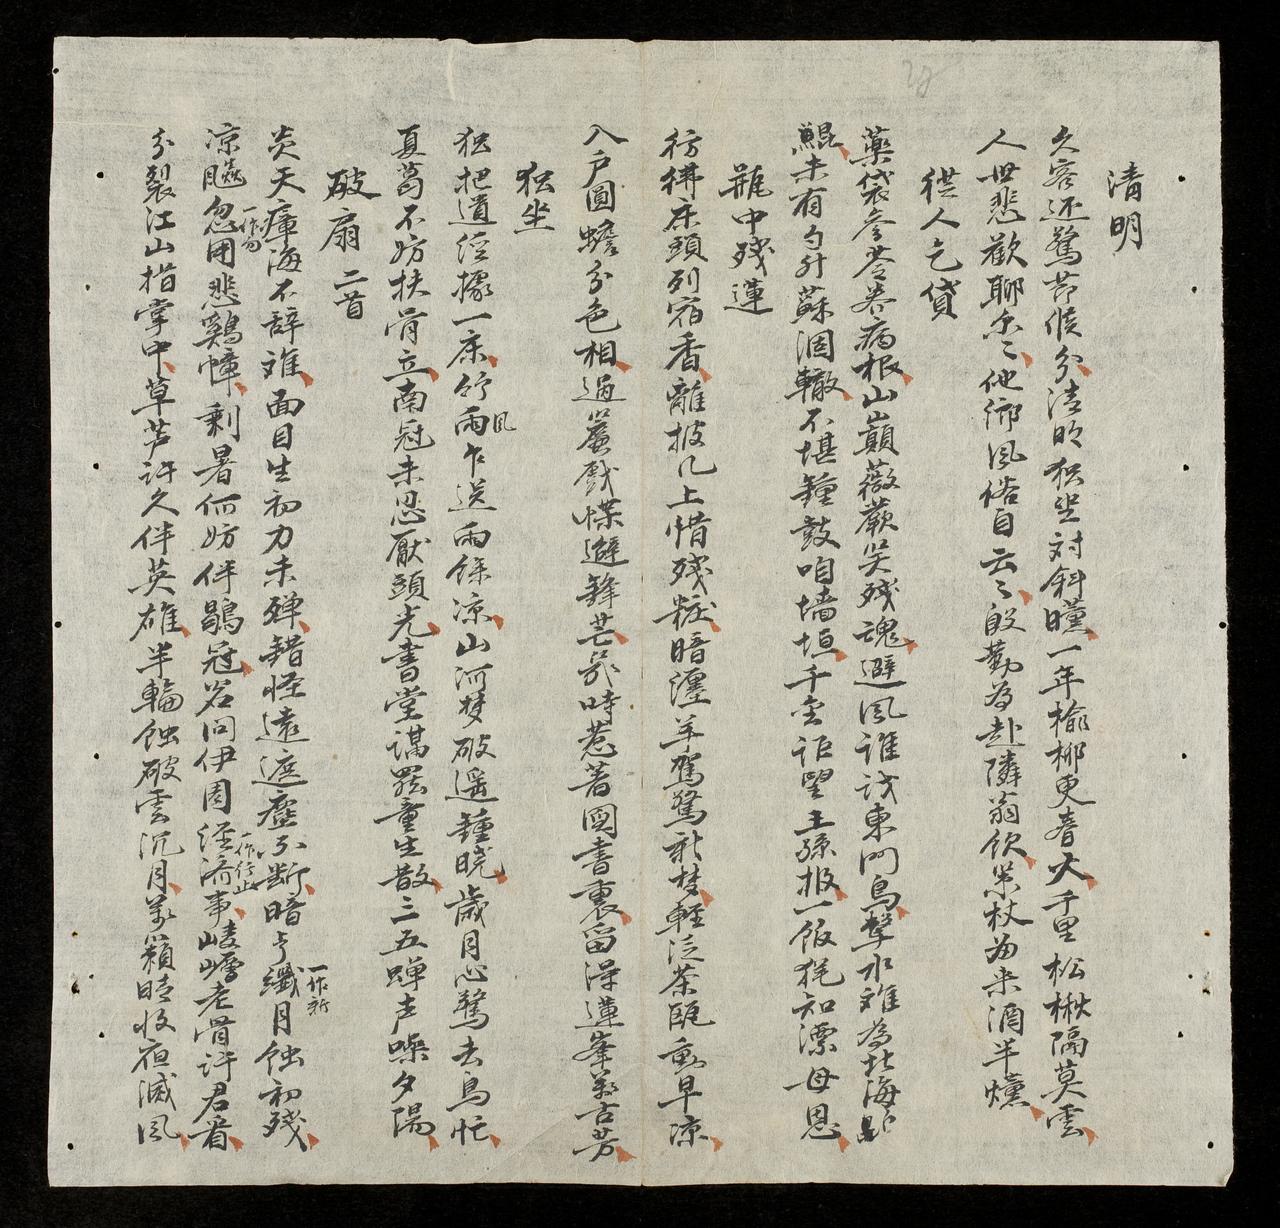 清明
久客还驚节候分清明独坐对斜曛一年榆柳更春火千里松楸隔莫雲
人世悲歡聊尔々他鄉風俗自云々殷勤為赴隣翁飲策杖歸来酒半燻
從人乞貸
藥袋參苓養病根山巔薇蕨哭残魂避風誰識東門鳥擊水难為北海
鯤未有勺升蘇涸轍不堪鐘鼓响墻垣千金詎望王孫报一飯犹知漂母恩
瓶中残蓮
彷彿床頭列宿香離披几上惜残粧暗湮羊駕驚新梦輕泛茶甌動早凉
入户圓蟾分色相過簾戲蝶避鋒芒幾時惹著圖書裏留得蓮峯萬古芳
独坐
独把道經據一床竹雨風乍送雨餘凉山河梦破遥鐘曉歲月心驚去鳥忙
夏葛不妨扶骨立南冠未忍厭頭光書堂講罷童生散三五蟬声噪夕陽
破扇 二首
炎天瘴海不辞难面目生初力未殫錯怪遠遮塵不断暗兮纖一作新月蝕初残
凉飈忽一作勿用悲鷄幛剩暑何妨伴鶡冠若问伊周經濟一作行止事崚嶒老骨許君看
分裂江山指掌中草芦許久伴英雄半輪蝕破雲沉月萬籟暗收夜滅風